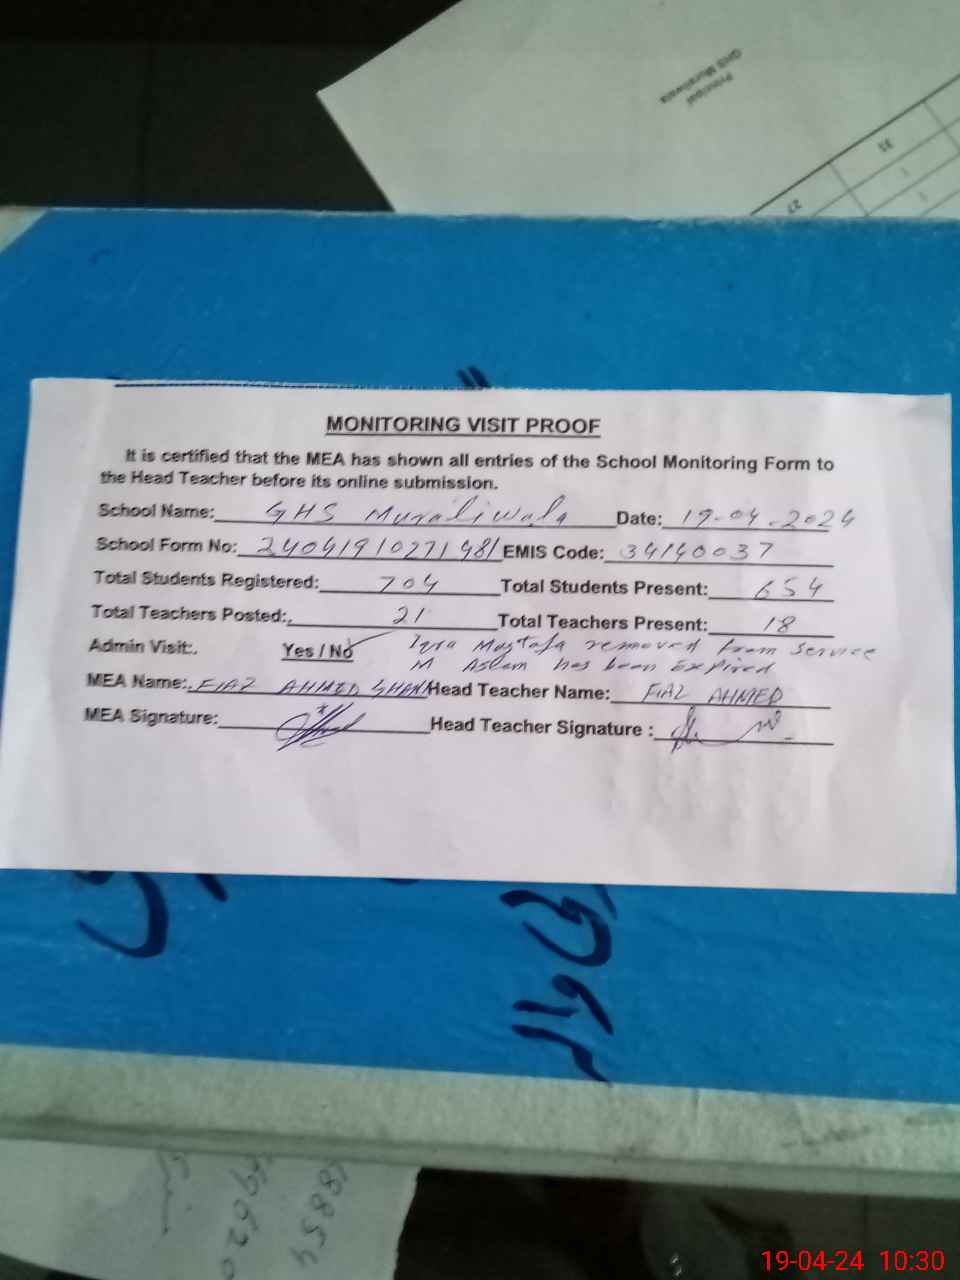 Principal
GHS Muraliwala
31
27
MONITORING VISIT PROOF
It is certified that the MEA has shown all entries of the School Monitoring Form to
the Head Teacher before its online submission.
School Name: GHS Muraliwala Date: 19-04-2024
School Form No: 24041910271481 EMIS Code: 34140037
Total Students Registered: 704 Total Students Present: 654
Total Teachers Posted: 21 Total Teachers Present: 18
Admin Visit: Yes / No Iqra Mustafa removed from service
M Aslam has been Expired
MEA Name: FIAZ AHMED Head Teacher Name: FIAZ AHMED
MEA Signature: Head Teacher Signature :
18854
19-04-24 10:30